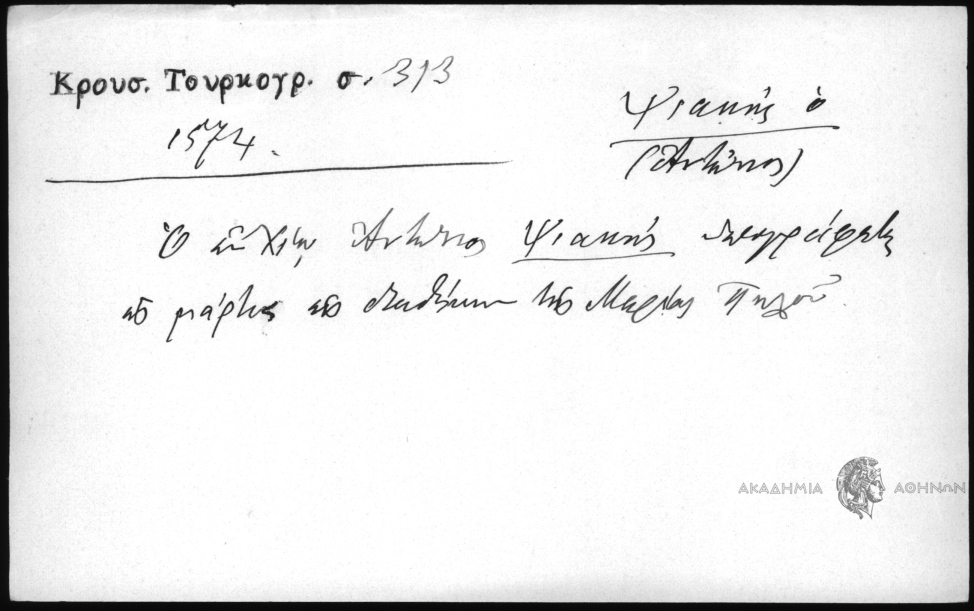 Κρουσ. Τουρκογρ. σ. 313
1574.
Ψιακῆς ὁ
(Ἀντώνιος)
Ὁ ἐν Χίῳ Ἀντώνιος Ψιακῆς ὑπογράφεται
ὡς μάρτυς εἰς διαθήκην τῆς Μαρίας Πηλοῦ.
ΑΚΑΔΗΜΙΑ ΑΘΗΝΩΝ